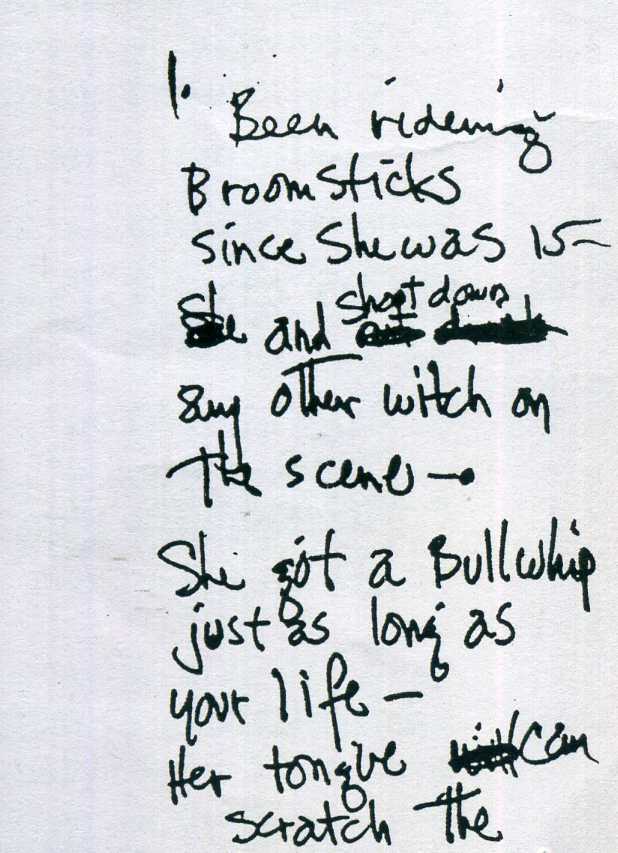 1.
Been rideming
Broomsticks
since she was 15–
and shoot down
any other witch on
the scene –
She got a Bullwhip
just as long as
your life –
Her tongue can
scratch the